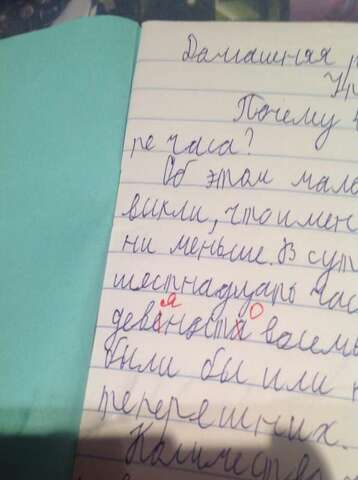 Домашняя р
Упр
Почему
ре часа?
Об этом мало
выкли, что имен
ни меньше. В сут
шестнадцать час
я о
девеноста восемь
были бы или
теперешних.
Количество